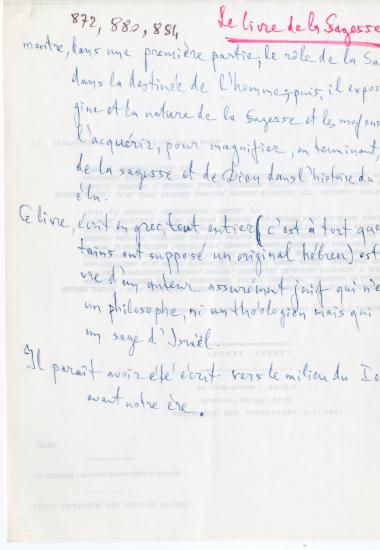 872, 880, 854
Le livre de la Sagesse
montre, dans une première partie, le rôle de la Sa
dans la destinée de l'homme, puis, il expos
gine et la nature de la Sagesse et les moyens
l'acquérir, pour magnifier, en terminant,
de la sagesse et de Dieu dans l'histoire du
élu.
Ce livre, écrit en grec, tout entier (c'est à tort que
tains ont supposé un original hébreu) est
vre d'un auteur assurément juif qui n'e
un philosophe, ni un théologien mais qui
un sage d'Israël.
Il paraît avoir été écrit vers le milieu du Ie
avant notre ère.